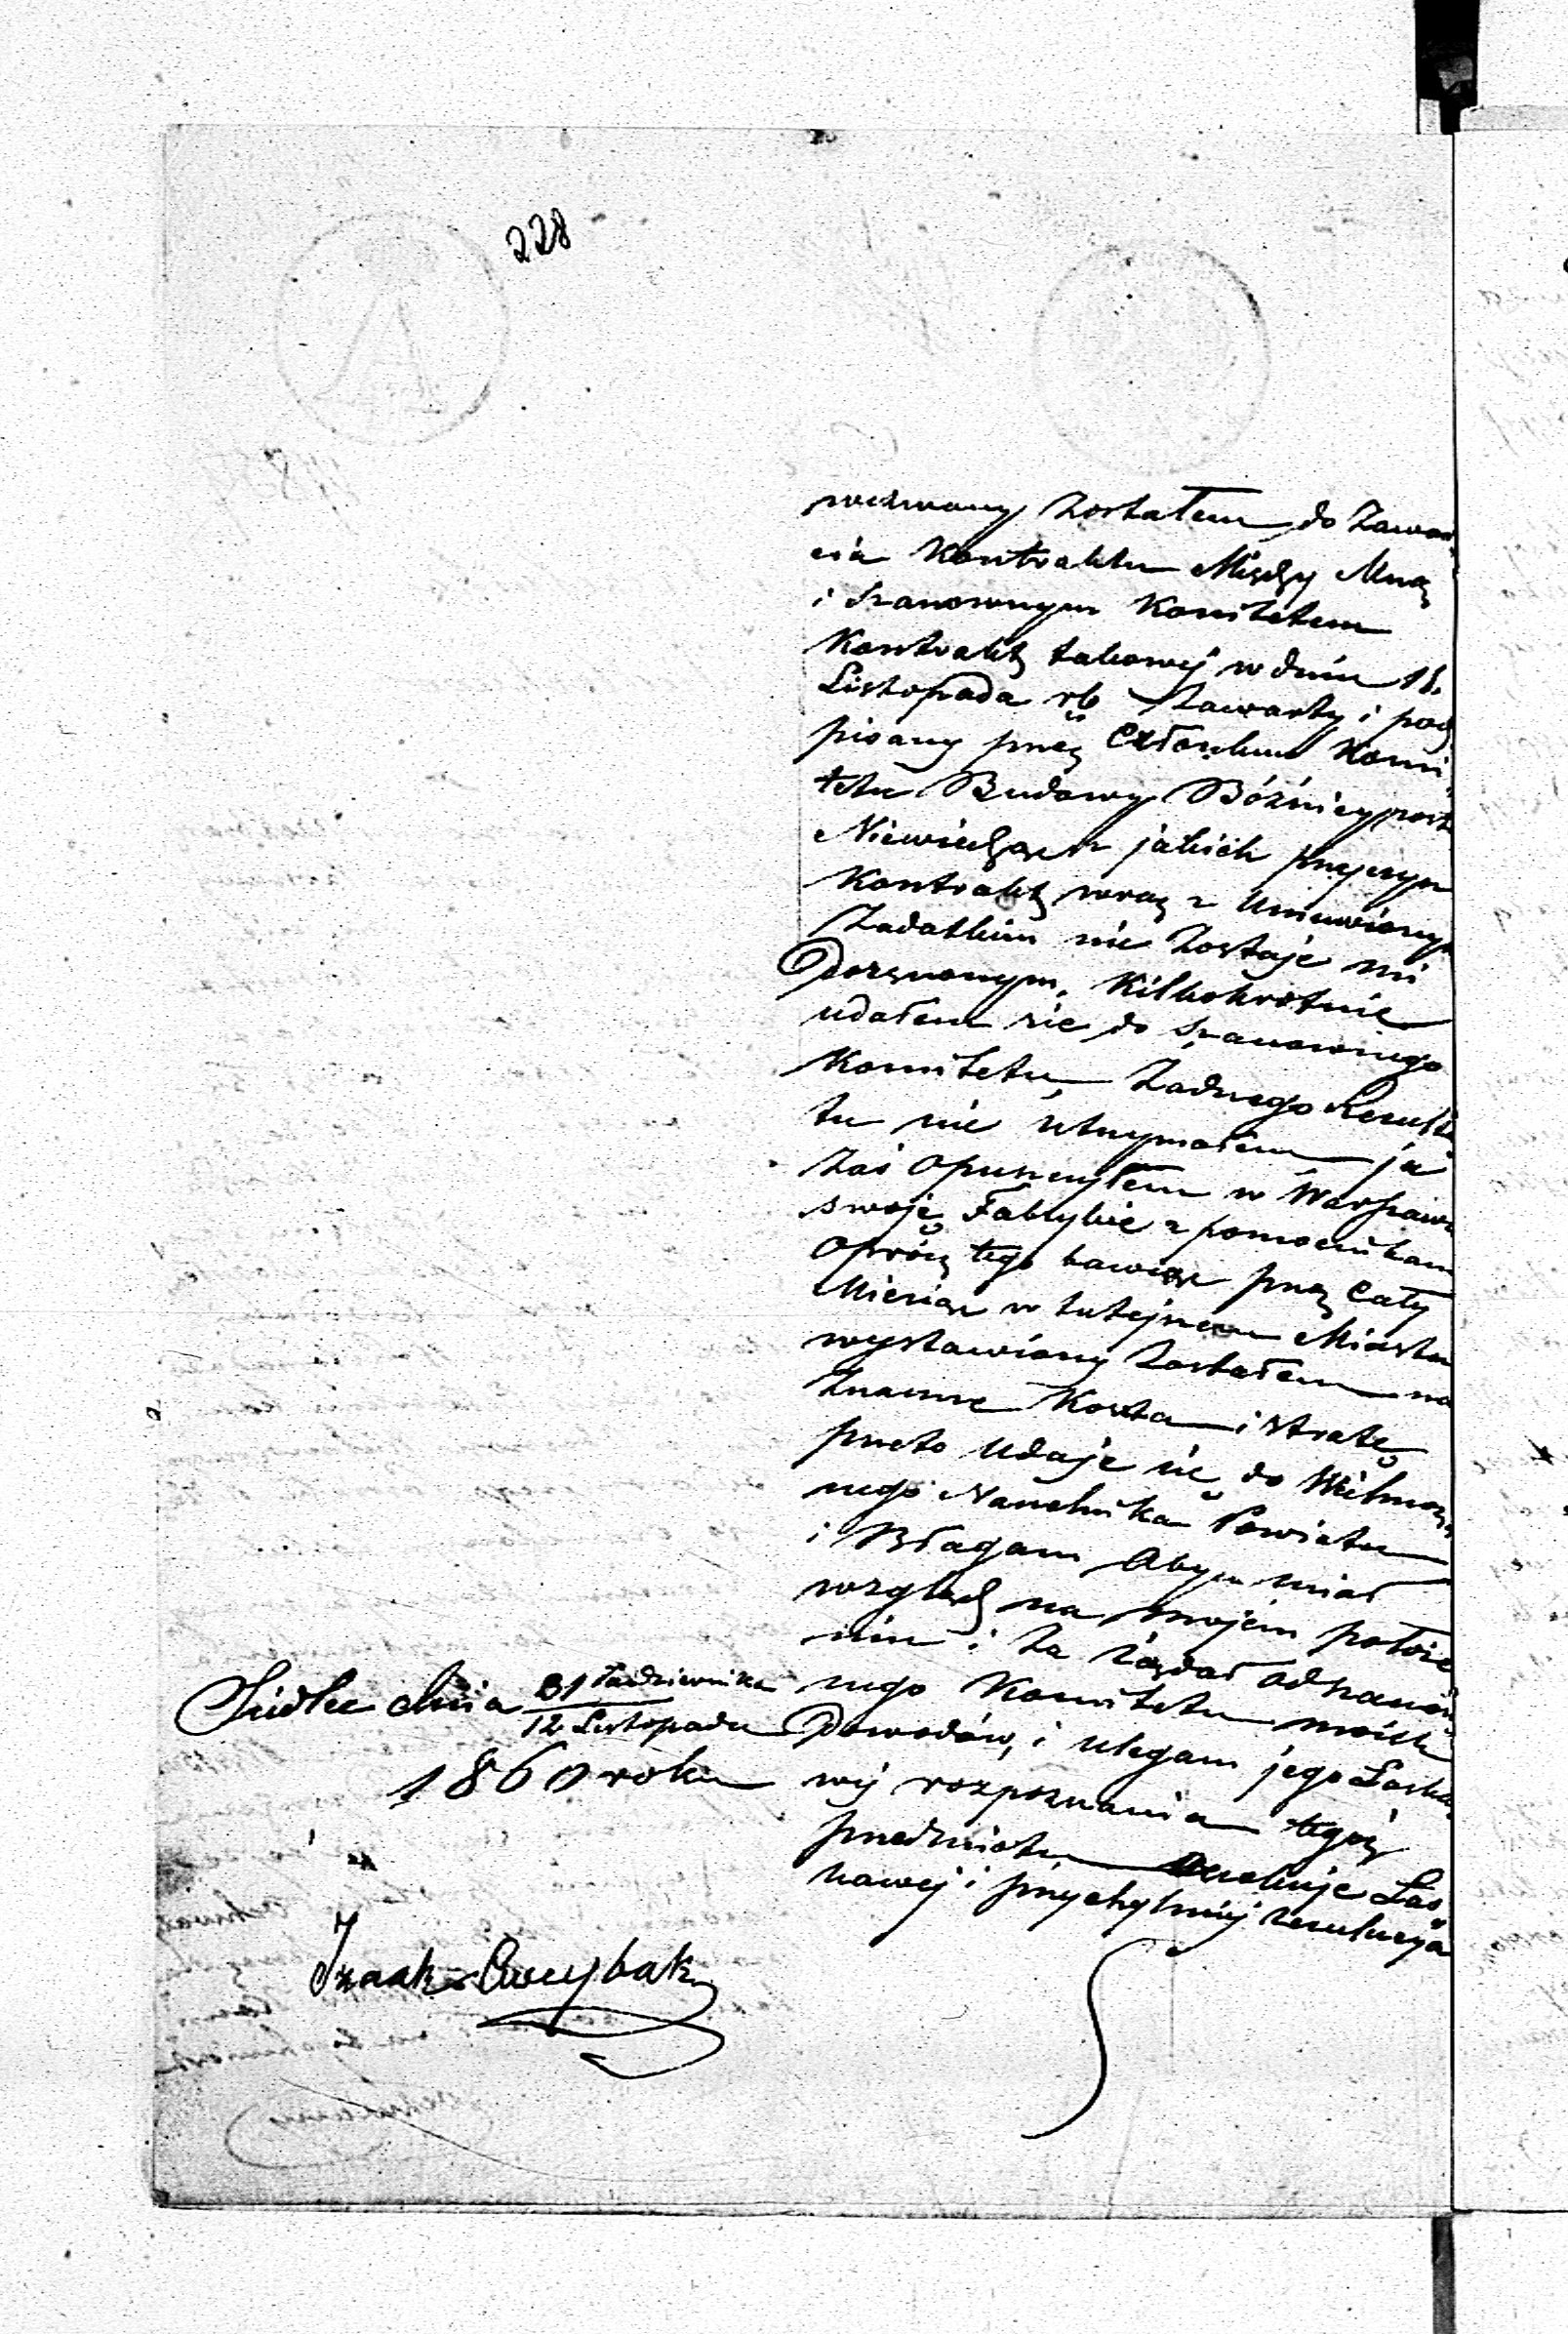 228
wezwany zostałem do Zawar
cia Kontraktu Między Mną
i Szanownym Komitetem
Kontrakt takowy w dniu 16.
Listopada rb Zawarty i pod
pisany przez Członków Komi
tetu Budowy Bóźnicy
Niewiedząc z jakich przyczyn
Kontrakt wraz z Umuwionym
Zadatkim nie Zostaje mi
Doręnonym. Kilkokrotnie
udałem sie do Szanownego
Komitetu Żadnego Rezulta
tu nie utrzymałem ja
Zaś Opuszczyłem w Warszawie
swoję Fabrykie z pomocnikam
Oprócz tego bawiąc przez Cały
Miesiąc w tutejszem Miastu
wystawiony Zostałem na
Znaczne Koszta i stratę
przeto Udaje się do Wielmoż
nego Naczelnika Powiatu
i Błagam Abym miał
wzgląd na mojem położe
niu i Za żądał od szanow
nego Komitetu moich
Dowodów, i ulegam jego Łaska
wej rozpoznania tegoż
przedmiotu Oczekuje Łas
kawej i przychylnéj rezulucyja
Siedlce dnia 31 Października
12 Listopada
1860 roku
Izaak Owczybak